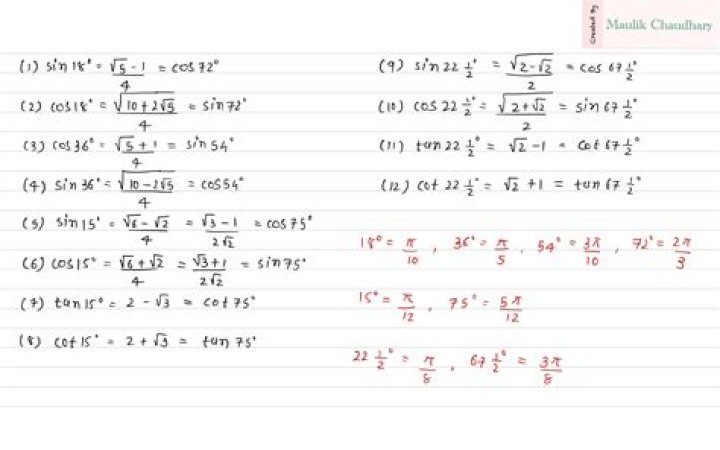 Created By
Maulik Chaudhary
(1) sin 18° = (√5 - 1)/4 = cos 72°
(2) cos 18° = √(10 + 2√5)/4 = sin 72°
(3) cos 36° = (√5 + 1)/4 = sin 54°
(4) sin 36° = √(10 - 2√5)/4 = cos 54°
(5) sin 15° = (√6 - √2)/4 = (√3 - 1)/2√2 = cos 75°
(6) cos 15° = (√6 + √2)/4 = (√3 + 1)/2√2 = sin 75°
(7) tan 15° = 2 - √3 = cot 75°
(8) cot 15° = 2 + √3 = tan 75°
(9) sin 22 1/2° = √(2 - √2)/2 = cos 67 1/2°
(10) cos 22 1/2° = √(2 + √2)/2 = sin 67 1/2°
(11) tan 22 1/2° = √2 - 1 = cot 67 1/2°
(12) cot 22 1/2° = √2 + 1 = tan 67 1/2°
18° = π/10 , 36° = π/5 , 54° = 3π/10 , 72° = 2π/3
15° = π/12 , 75° = 5π/12
22 1/2° = π/8 , 67 1/2° = 3π/8